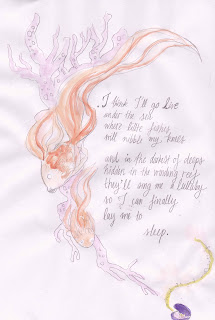 I think I'll go live
under the sea
where little fishies
will nibble my knees
and in the darkest of deeps
hidden in the winding reef
they'll sing me a lullaby
so I can finally
lay me to
sleep.